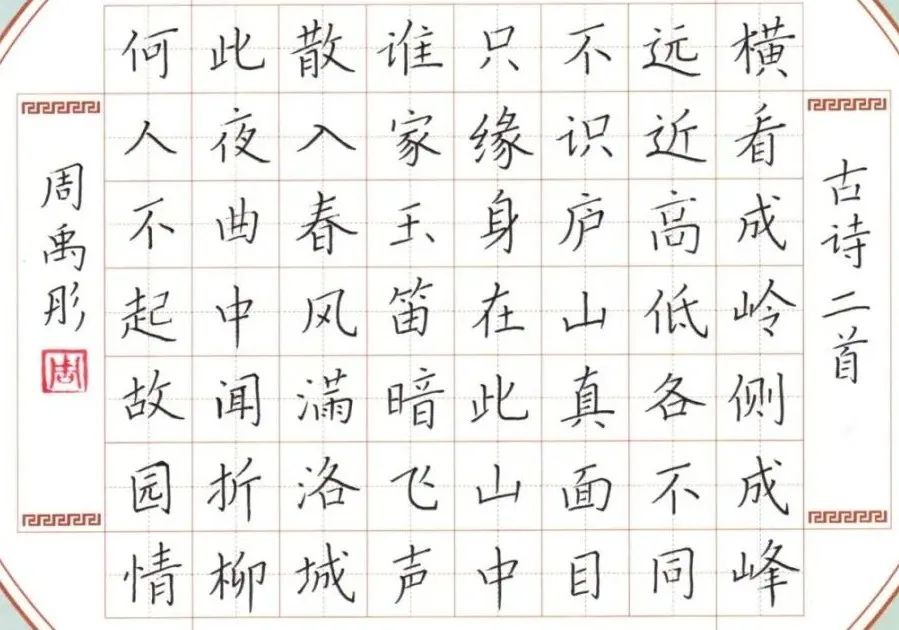 古诗二首
横看成岭侧成峰
远近高低各不同
不识庐山真面目
只缘身在此山中
谁家玉笛暗飞声
散入春风满洛城
此夜曲中闻折柳
何人不起故园情
周禹彤
周